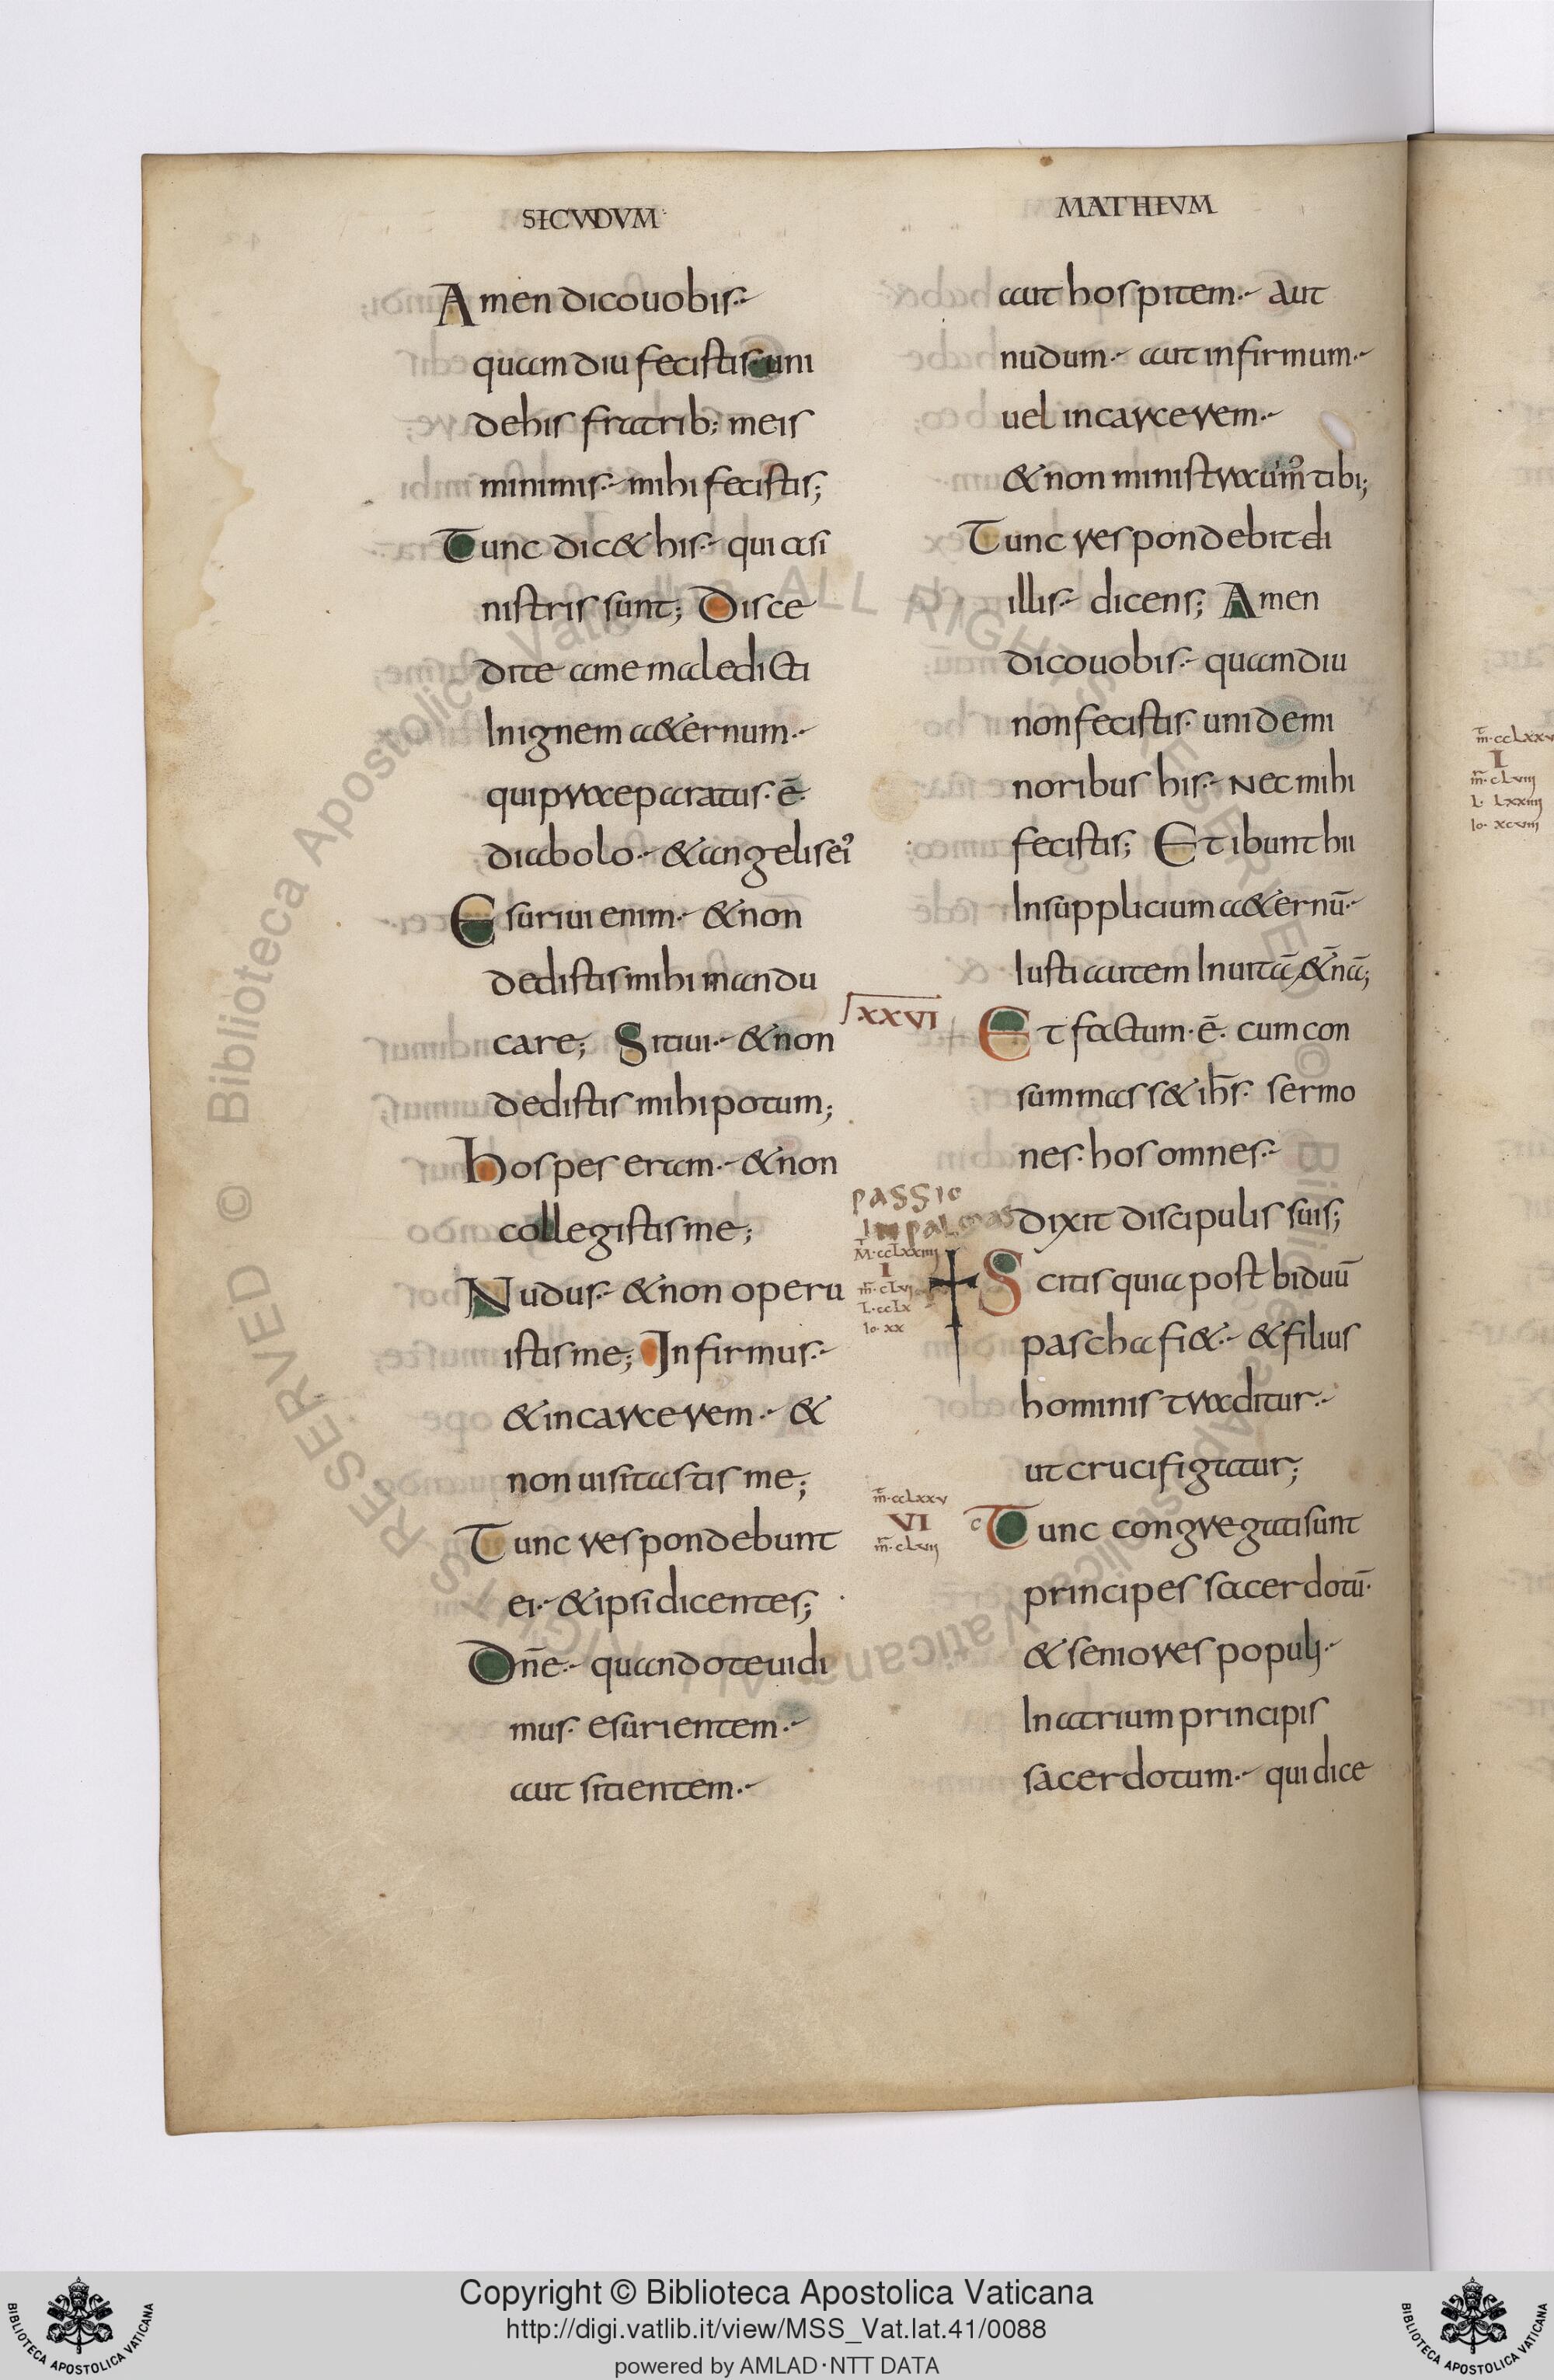 SECUNDUM
Amen dico uobis·
quamdiu fecistis uni
de his fratrib; meis
minimis· mihi fecistis;
Tunc dic& his· qui a si
nistris sunt; Disce
dite a me maledicti
In ignem a&ernum·
qui preparatus· ē·
diabolo· & angelis ei'
Esuriui enim· & non
dedistis mihi mandu
care; Sitiui· & non
dedistis mihi potum;
hospes eram· & non
collegistis me;
Nudus· & non operu
istis me; Infirmus·
& in carcerem· &
non uisitastis me;
Tunc respondebunt
ei· & ipsi dicentes;
Dn̄e· quando te uidi
mus· esurientem·
aut sitientem·
MATHEUM
aut hospitem· aut
nudum· aut infirmum·
uel in carcerem·
& non ministrauim' tibi;
Tunc respondebit di
illis· dicens; Amen
dico uobis· quamdiu
non fecistis· uni de mi
noribus his· Nec mihi
fecistis; Et ibunt hii
In supplicium a&ernū·
Iusti autem In uitā &nā;
XXVI
Et factum· ē· cum con
summass& ih̄s· sermo
nes· hos omnes·
dixit discipulis suis;
PASSIO
IN PALMAS
M·ccLxxiiii
I
m·cLvi
L·ccLx
Io·xx
Scitis quia post biduū
pascha fi&· & filius
hominis traditur·
ut crucifigatur;
m·ccLxxv
VI
m·cLvii
Tunc congregati sunt
principes sacerdotū·
& seniores populi·
In atrium principis
sacerdotum· qui dice
m·ccLxxv
I
m·cLviii
L· Lxxiiii
Io· xcviii
© Biblioteca Apostolica Vaticana ALL RIGHTS RESERVED
Copyright © Biblioteca Apostolica Vaticana
http://digi.vatlib.it/view/MSS_Vat.lat.41/0088
powered by AMLAD·NTT DATA
BIBLIOTECA APOSTOLICA VATICANA
BIBLIOTECA APOSTOLICA VATICANA